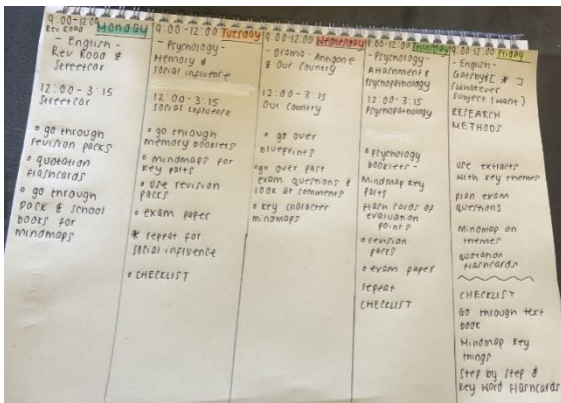 9:00-12:00
Rev Road
Monday
- English -
Rev Road &
Streetcar
12:00-3:15
Streetcar
go through
revision packs
quotation
flashcards
go through
pack & school
books for
mindmaps
9:00-12:00
Tuesday
- Psychology -
Memory &
social influence
12:00-3:15
social influence
go through
memory booklets
mindmaps for
key parts
use revision
packs
exam paper
* repeat for
social influence
CHECKLIST
9:00-12:00
Wednesday
- Drama - Antigone
& Our Country
12:00-3:15
Our Country
go over
blueprints
go over past
exam questions &
look at comments
key character
mindmaps
9:00-12:00
Thursday
- Psychology -
Attachment &
Psychopathology
12:00-3:15
Psychopathology
psychology
booklets -
mindmap key
parts
flash cards of
evaluation
points
revision
packs
exam paper
repeat
CHECKLIST
9:00-12:00
Friday
- English -
Gatsby [ * ]
(whatever
subject I want)
RESEARCH
METHODS
use extracts
with key themes
plan exam
questions
mindmap on
themes
quotation
flashcards
CHECKLIST
Go through text
book
Mindmap key
things
Step by step &
key word flashcards